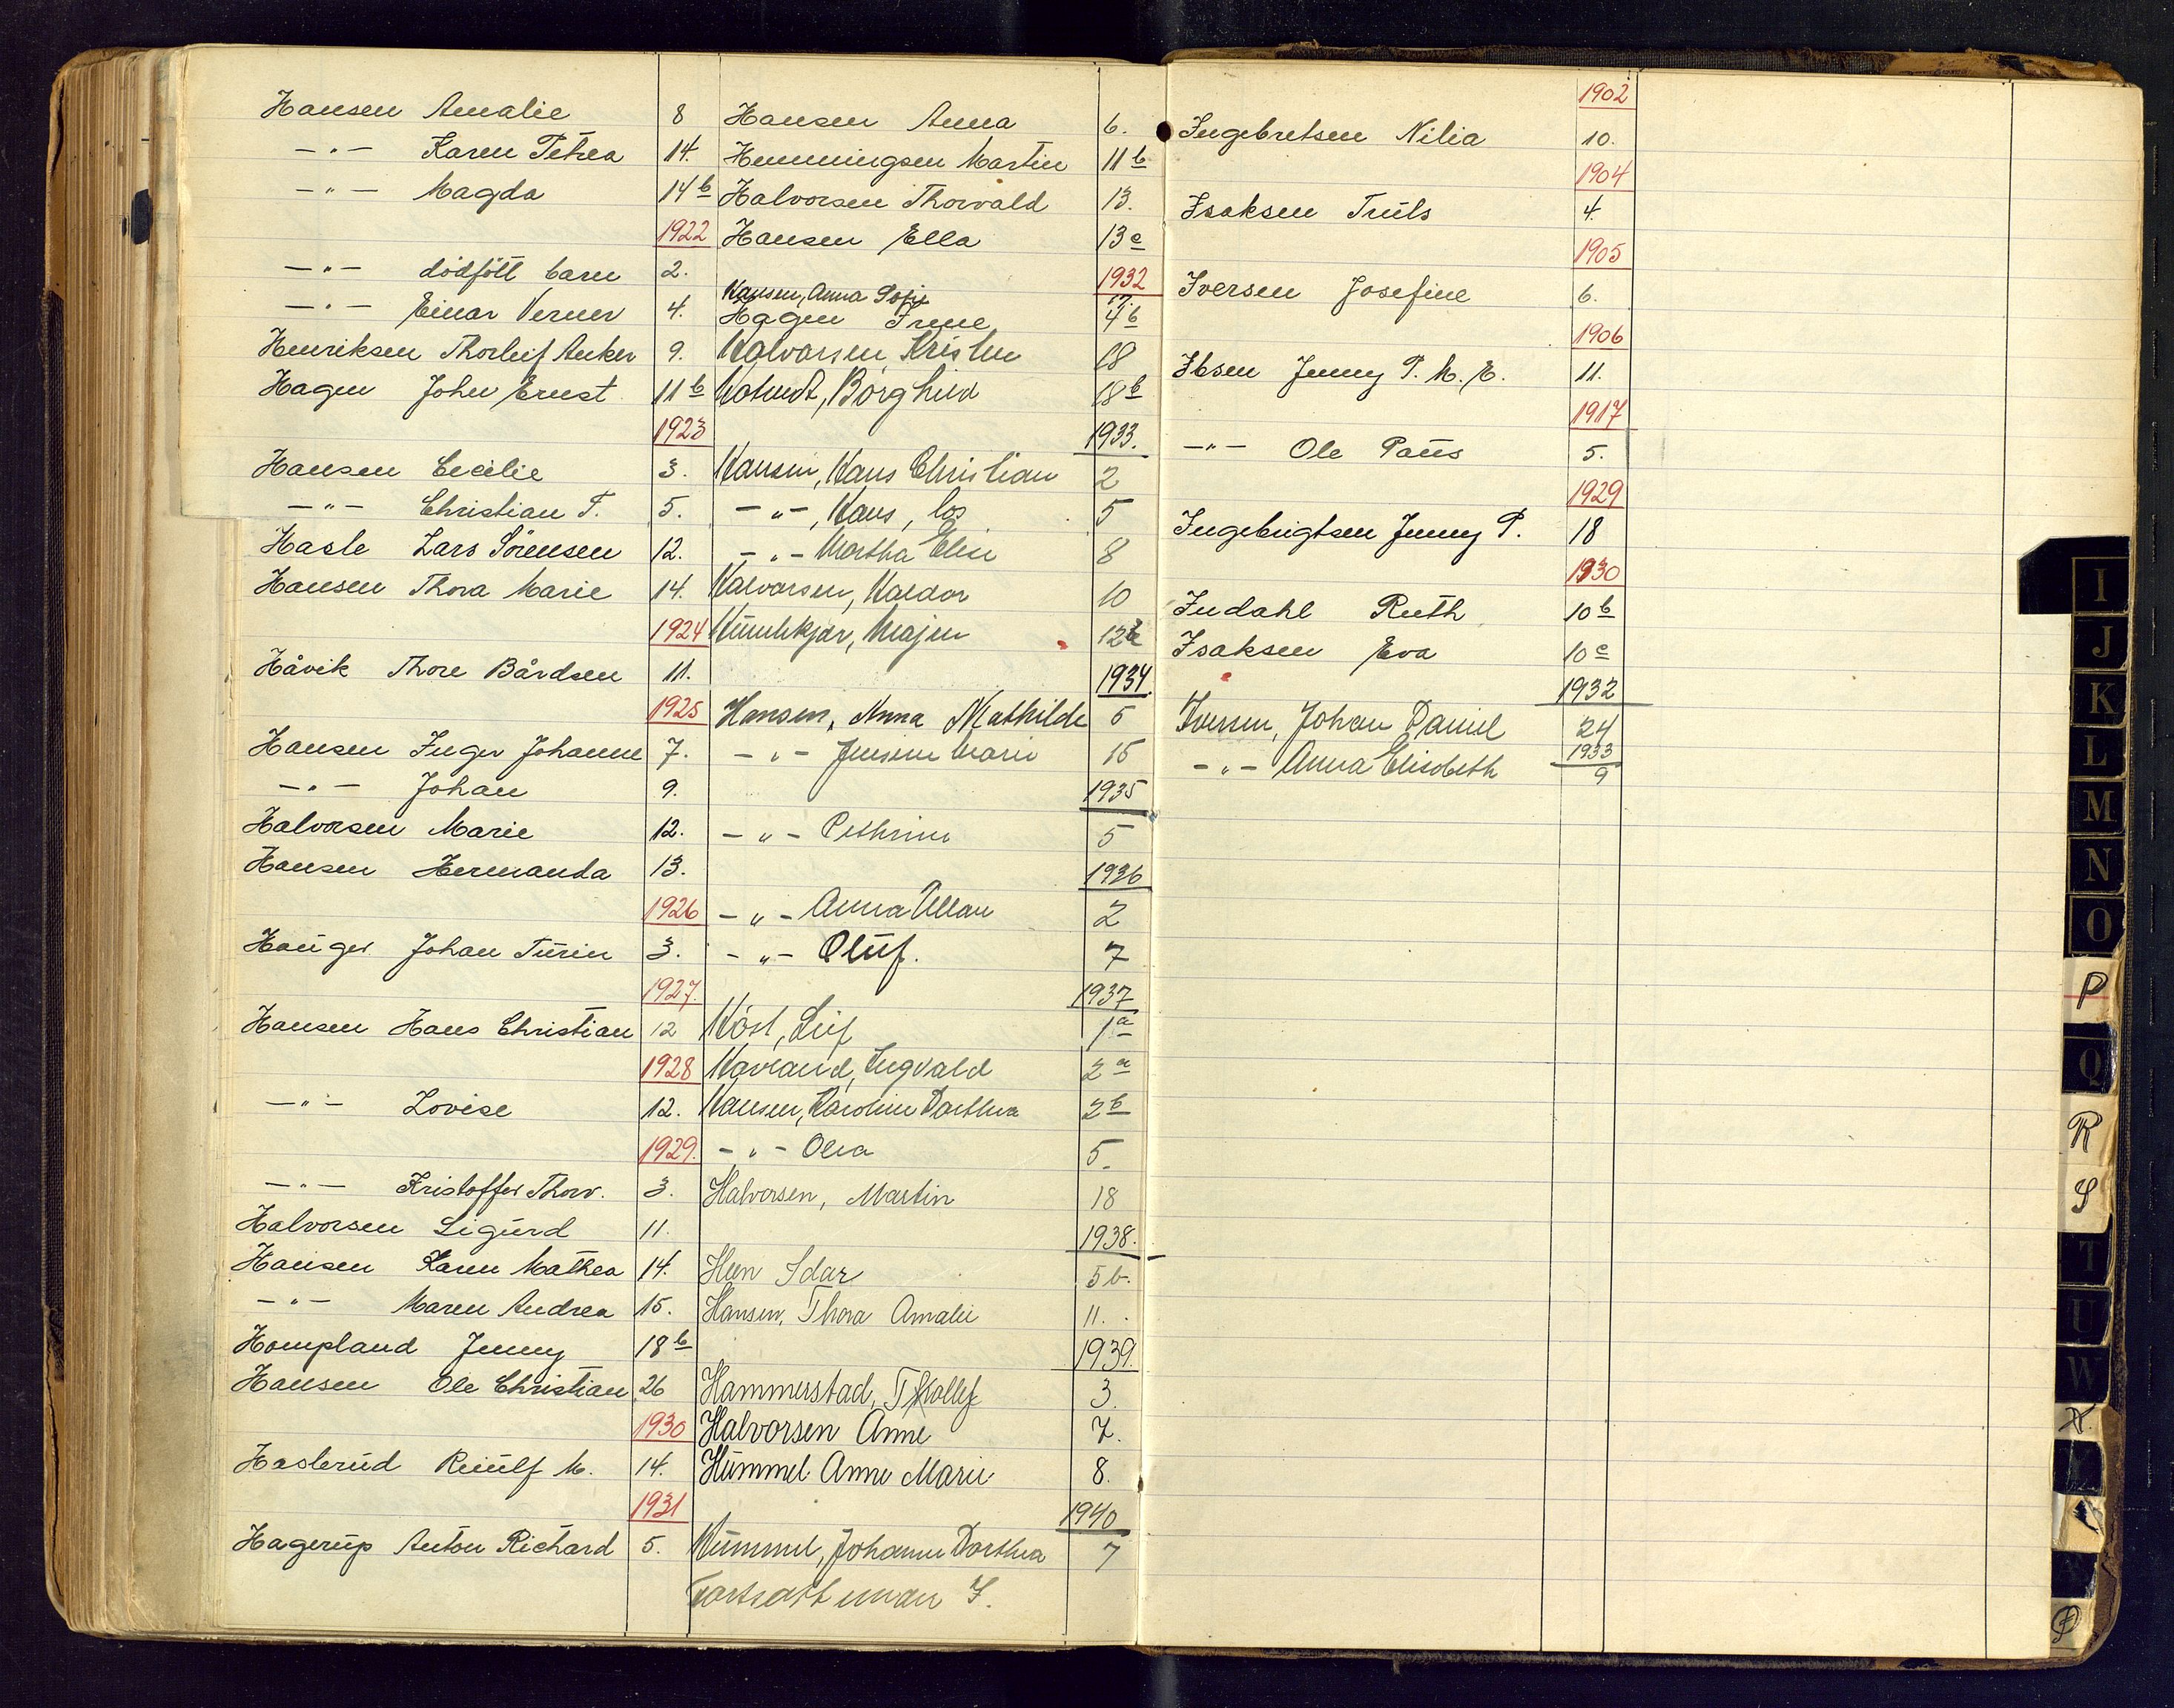 Hansen Amalie 8
-"- Karen Petrea 14.
-"- Magda 14b
1922
-"- dödfött barn 2.
-"- Einar Verner 4.
Henriksen Thorleif Anker 9.
Hagen John Ernst 11b
1923
Hansen Cecilie 3.
-"- Christian F. 5.
Hasle Lars Sörensen 12.
Hansen Thora Marie 14.
1924
Håvik Thore Bårdsen 11.
1925
Hansen Inger Johanne 7.
-"- Johan 9.
Halvorsen Marie 12.
Hansen Hermanda 13.
1926
Hauger Johan Turin 3.
1927.
Hansen Hans Christian 12
1928
-"- Lovise 12.
1929.
-"- Kristoffer Thorv. 3.
Halvorsen Sigurd 11.
Hansen Karen Mathea 14.
-"- Maren Andrea 15.
Hompland Jenny 18b
Hansen Ole Christian 26
1930
Haslerud Reiulf M. 14.
1931
Hagerup Anton Richard 5.
Hansen Anna 6.
Hemmingsen Martin 11b
Halvorsen Thorvald 13.
Hansen Ella 13c
1932
Hansen, Anna Sofie 17.
Hagen Irene 4b
Halvorsen Kristen 18
Borghild 18b
1933.
Hansen, Hans Christian 2
-"-, Hans, los 5
-"- Martha Elise 8
Halvorsen, Haldor 10
Majen 12
1934.
Hansen, Anna Mathilde 5
-"- Jensine Marie 15
1935
-"- Pethrine 5
1936
-"- Anna Ellan 2
-"- Oluf. 7
1937
Höst, Leif 1a
Havrand, Ingvald 2a
Hansen, Karoline Dorthea 2b
-"- Olea 5.
Halvorsen, Martin 18
1938.
Heen Idar 5b.
Hansen, Thora Amalie 11.
1939.
Hammerstad, Thollef 3.
Halvorsen Anne 7.
Hummel Anne Marie 8.
1940
Hummel, Johanne Dorthea 7
Fortsatt innan I.
1902
Ingebretsen Nilia 10.
1904
Isaksen Truls 4.
1905
Iversen Josefine 6.
1906
Ibsen Jenny P. M. E. 11.
1917
-"- Ole Paus 5.
1929
Ingebrigtsen Jenny P. 18
1930
Indahl Ruth 10b
Isaksen Eva 10c
1932
Iversen, Johan Daniel 24
1933
-"- Anna Elisabeth 9
I
J
K
L
M
N
O
P
Q
R
S
T
U
W